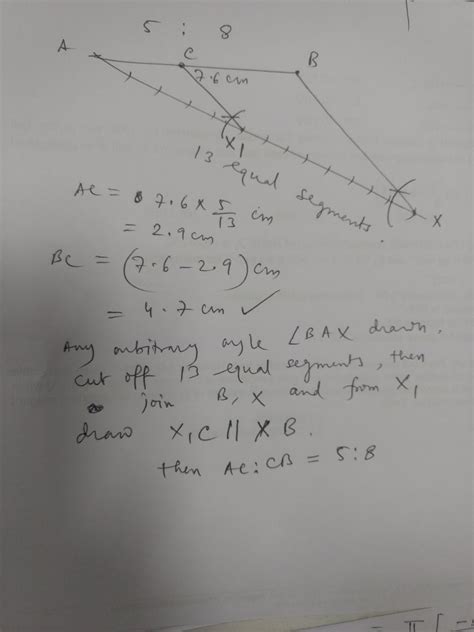 5 : 8
A
C
B
7.6 cm
X1
13 equal segments.
X
AC = 7.6 × 5/13 cm
= 2.9 cm
BC = (7.6 - 2.9) cm
= 4.7 cm ✓
Any arbitrary angle ∠BAX drawn.
cut off 13 equal segments, then
join B, X and from X1
draw X1C || XB.
then AC : CB = 5 : 8
= π [